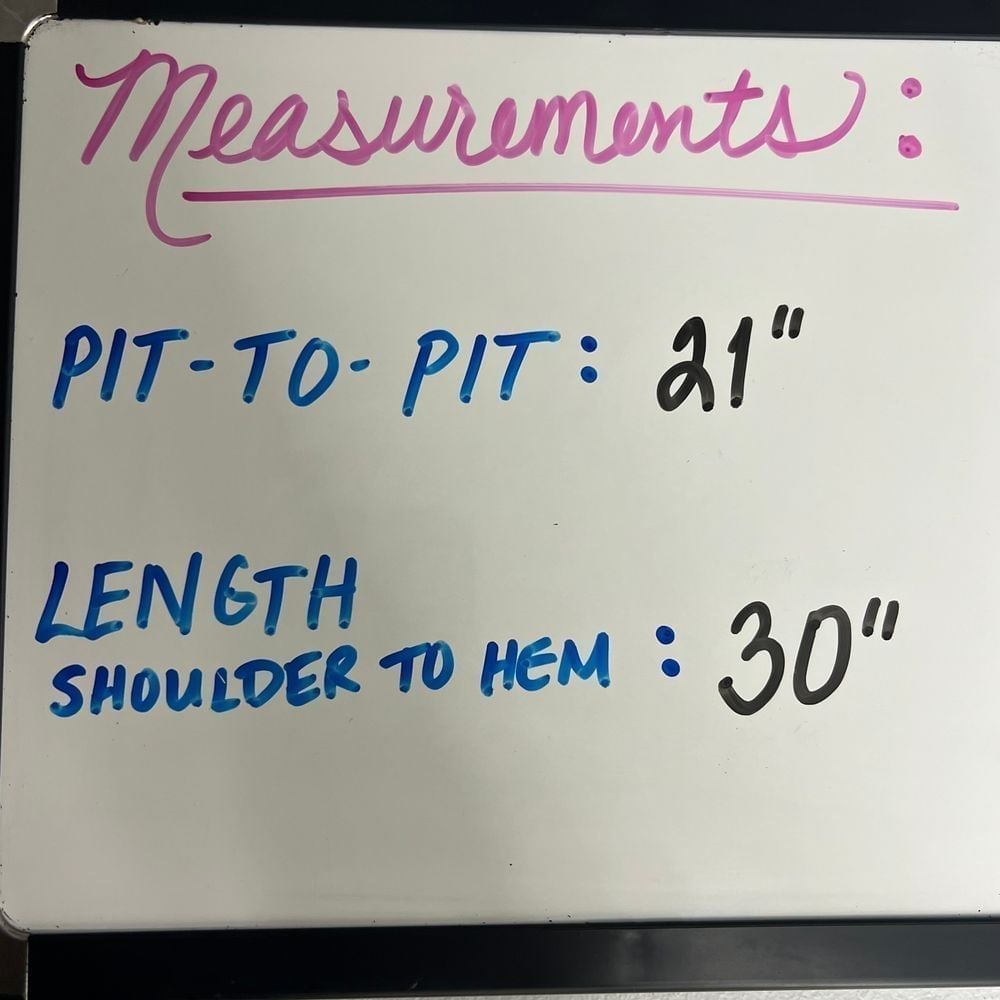 Measurements:
PIT-TO-PIT: 21"
LENGTH
SHOULDER TO HEM: 30"